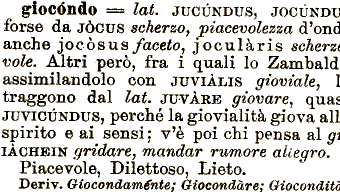 giocóndo = lat. JUCÚNDUS, JOCÚNDU
forse da JÒCUS scherzo, piacevolezza d'ond
anche jocòsus faceto, joculàris scherz
vole. Altri però, fra i quali lo Zambald
assimilandolo con JUVIÀLIS gioviale, l
traggono dal lat. JUVÀRE giovare, quas
JUVICÚNDUS, perché la giovialità giova all
spirito e ai sensi; v'è poi chi pensa al g
IÀCHEIN gridare, mandar rumore allegro.
Piacevole, Dilettoso, Lieto.
Deriv. Giocondaménte; Giocondàre; Giocondità